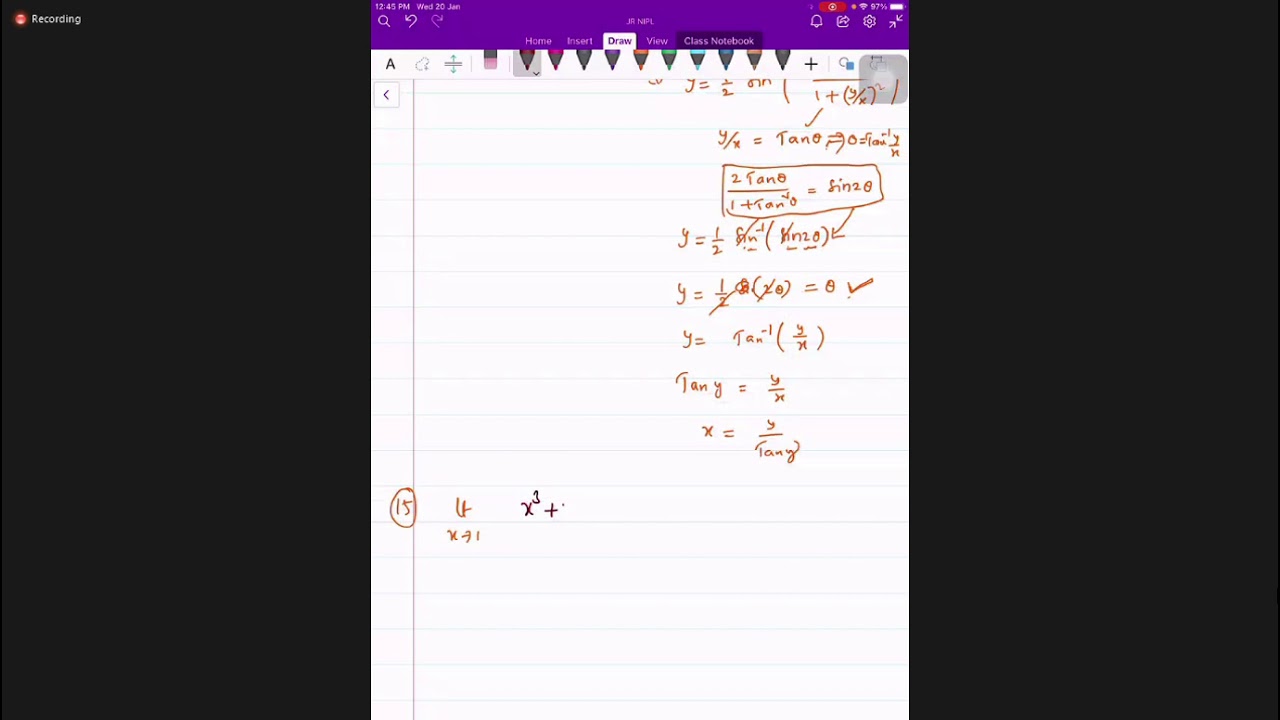 Recording
12:45 PM Wed 20 Jan
97%
JR NIPL
Home Insert Draw View Class Notebook
A
y = 1/2 sin ( 1 + (y/x)² )
y/x = Tanθ ⇒ θ = Tan⁻¹ y/x
2Tanθ / 1 + Tan²θ = Sin2θ
y = 1/2 Sin⁻¹ (Sin2θ)
y = 1/2 (2θ) = θ ✓
y = Tan⁻¹ (y/x)
Tan y = y/x
x = y/Tan y
15 lt x→1 x³ +